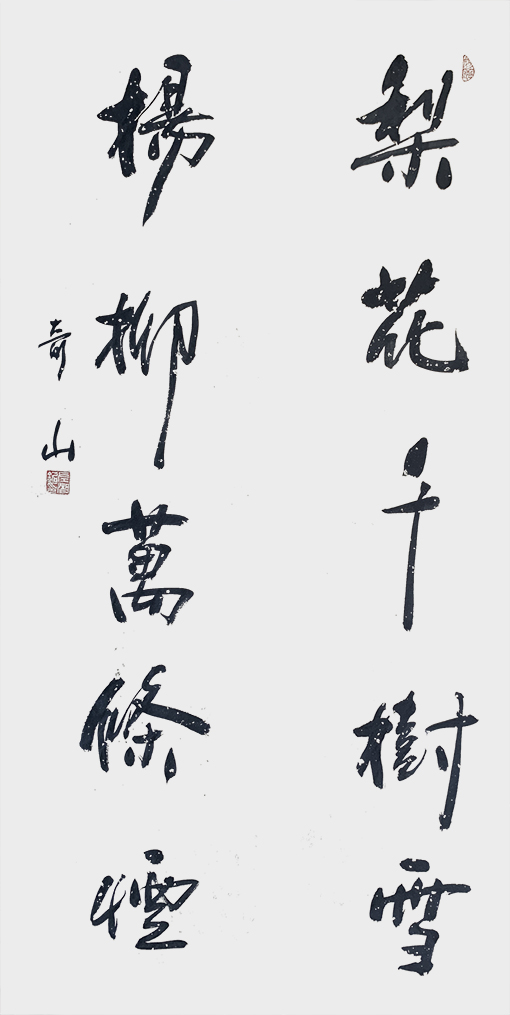 梨花千樹雪
楊柳萬條煙
奇山